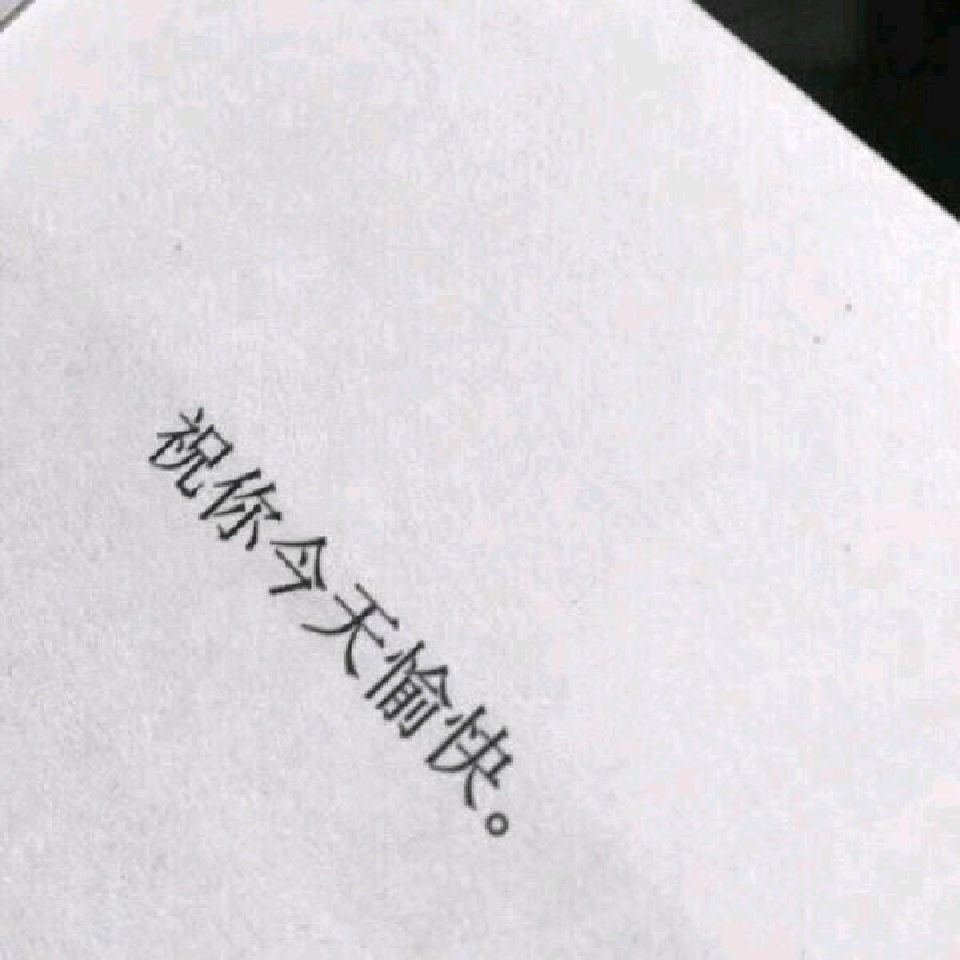 祝你今天愉快。